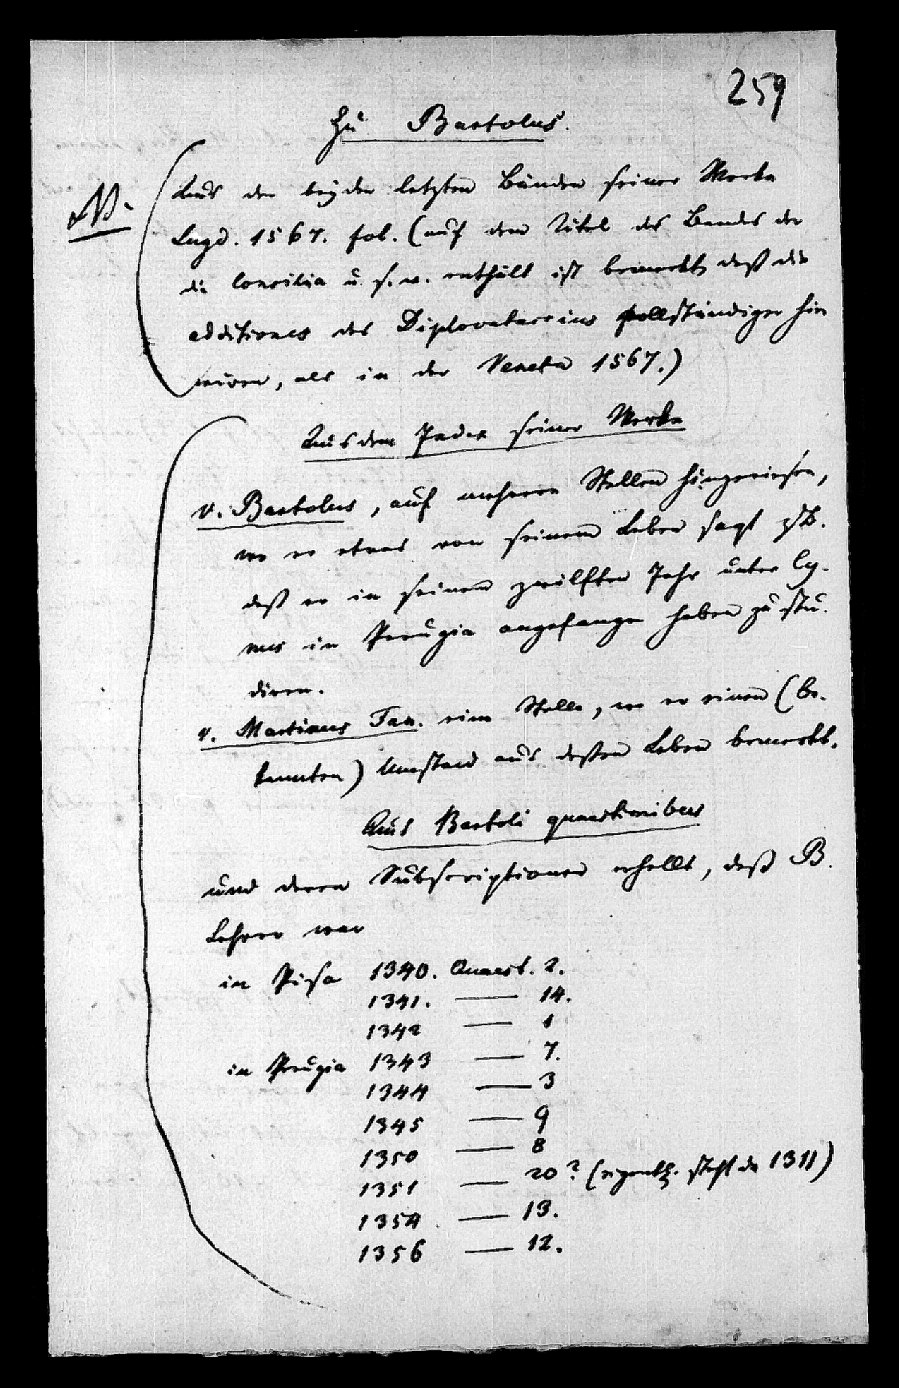 259
Zu Bartolus.
N.
Aus den beyden letzten Bänden seiner Werke
Lugd. 1567. fol. (auf dem Titel des Bandes der
die Consilia u. s. w. enthält ist bemerkt daß die
additiones des Diplovatacius vollständiger hier
wären, als in der Veneta 1567.)
Aus dem Index seiner Werke
v. Bartolus, auf mehrere Stellen hingewiesen,
wo er etwas von seinem Leben sagt z. B.
daß er in seinem zwölften Jahr unter Cy-
nus in Perugia angefangen haben zu stu-
diren.
v. Martinus eine Stelle, wo er einen (be-
kannten) Umstand aus dessen Leben bemerkt.
Aus Bartoli quaestionibus
und deren Subscriptionen erhellt, daß B.
Lehrer war
in Pisa 1340. Quaest. 2.
1341. — 14.
1342 — 1
in Perugia 1343 — 7.
1344 — 3
1345 — 9
1350 — 8
1351 — 20? (eigentl. steht da 1311)
1354 — 13.
1356 — 12.